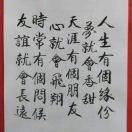 人生有個緣份
夢就會香甜
天涯有個朋友
心就會飛翔
時常有個問候
友誼就會長遠